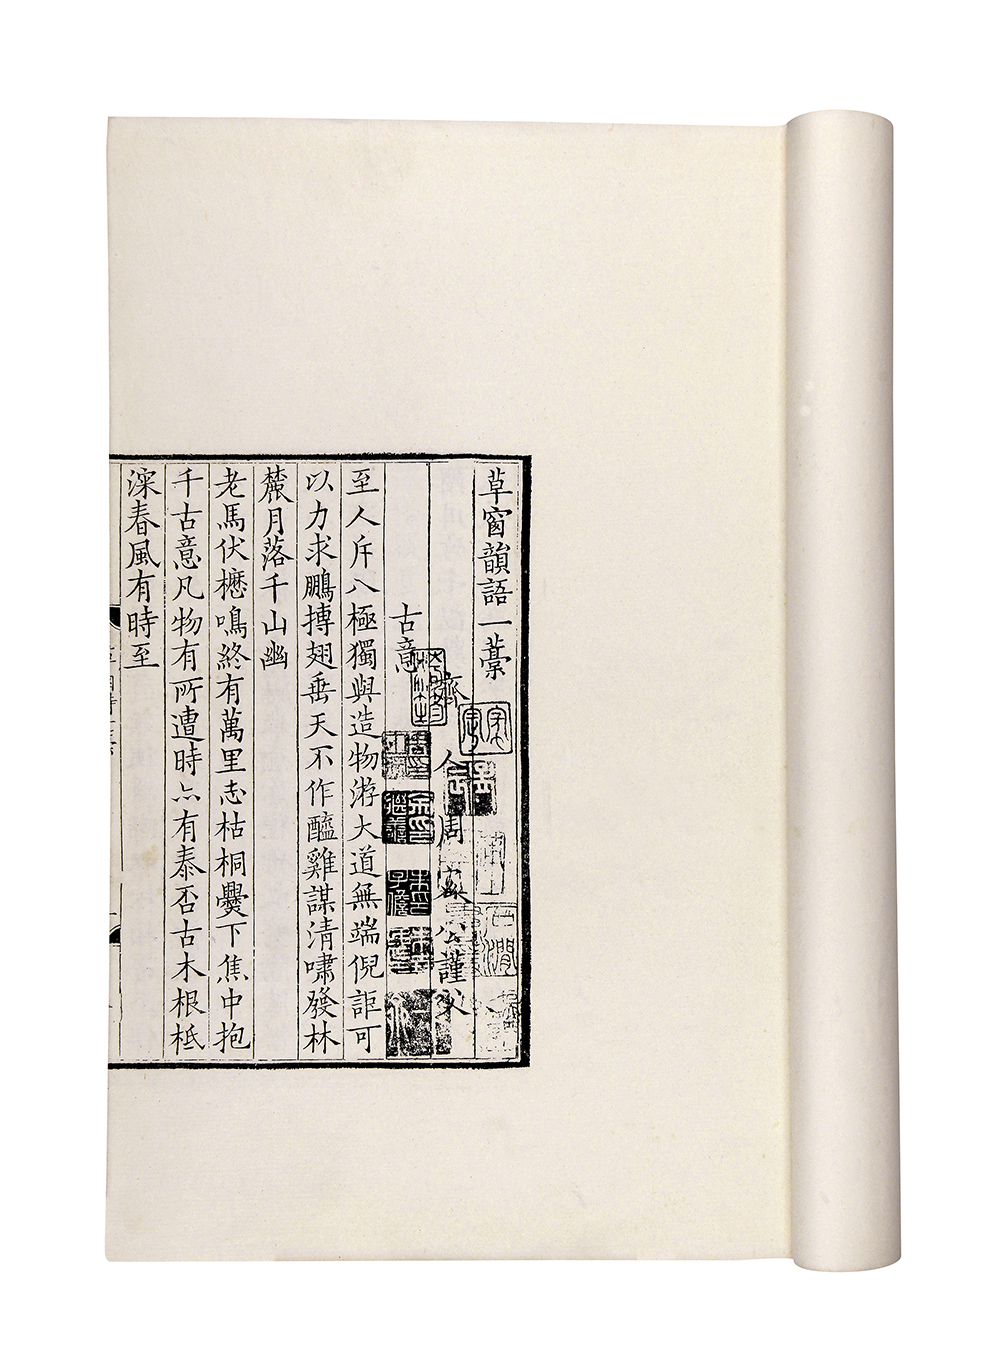 草窗韻語一藁
齊人周密公謹父
古意
至人斥八極獨與造物游大道無端倪詎可
以力求鵬摶翅垂天不作醯雞謀清嘯發林
麓月落千山幽
老馬伏櫪鳴終有萬里志枯桐爨下焦中抱
千古意凡物有所遭時亦有泰否古木根柢
深春風有時至